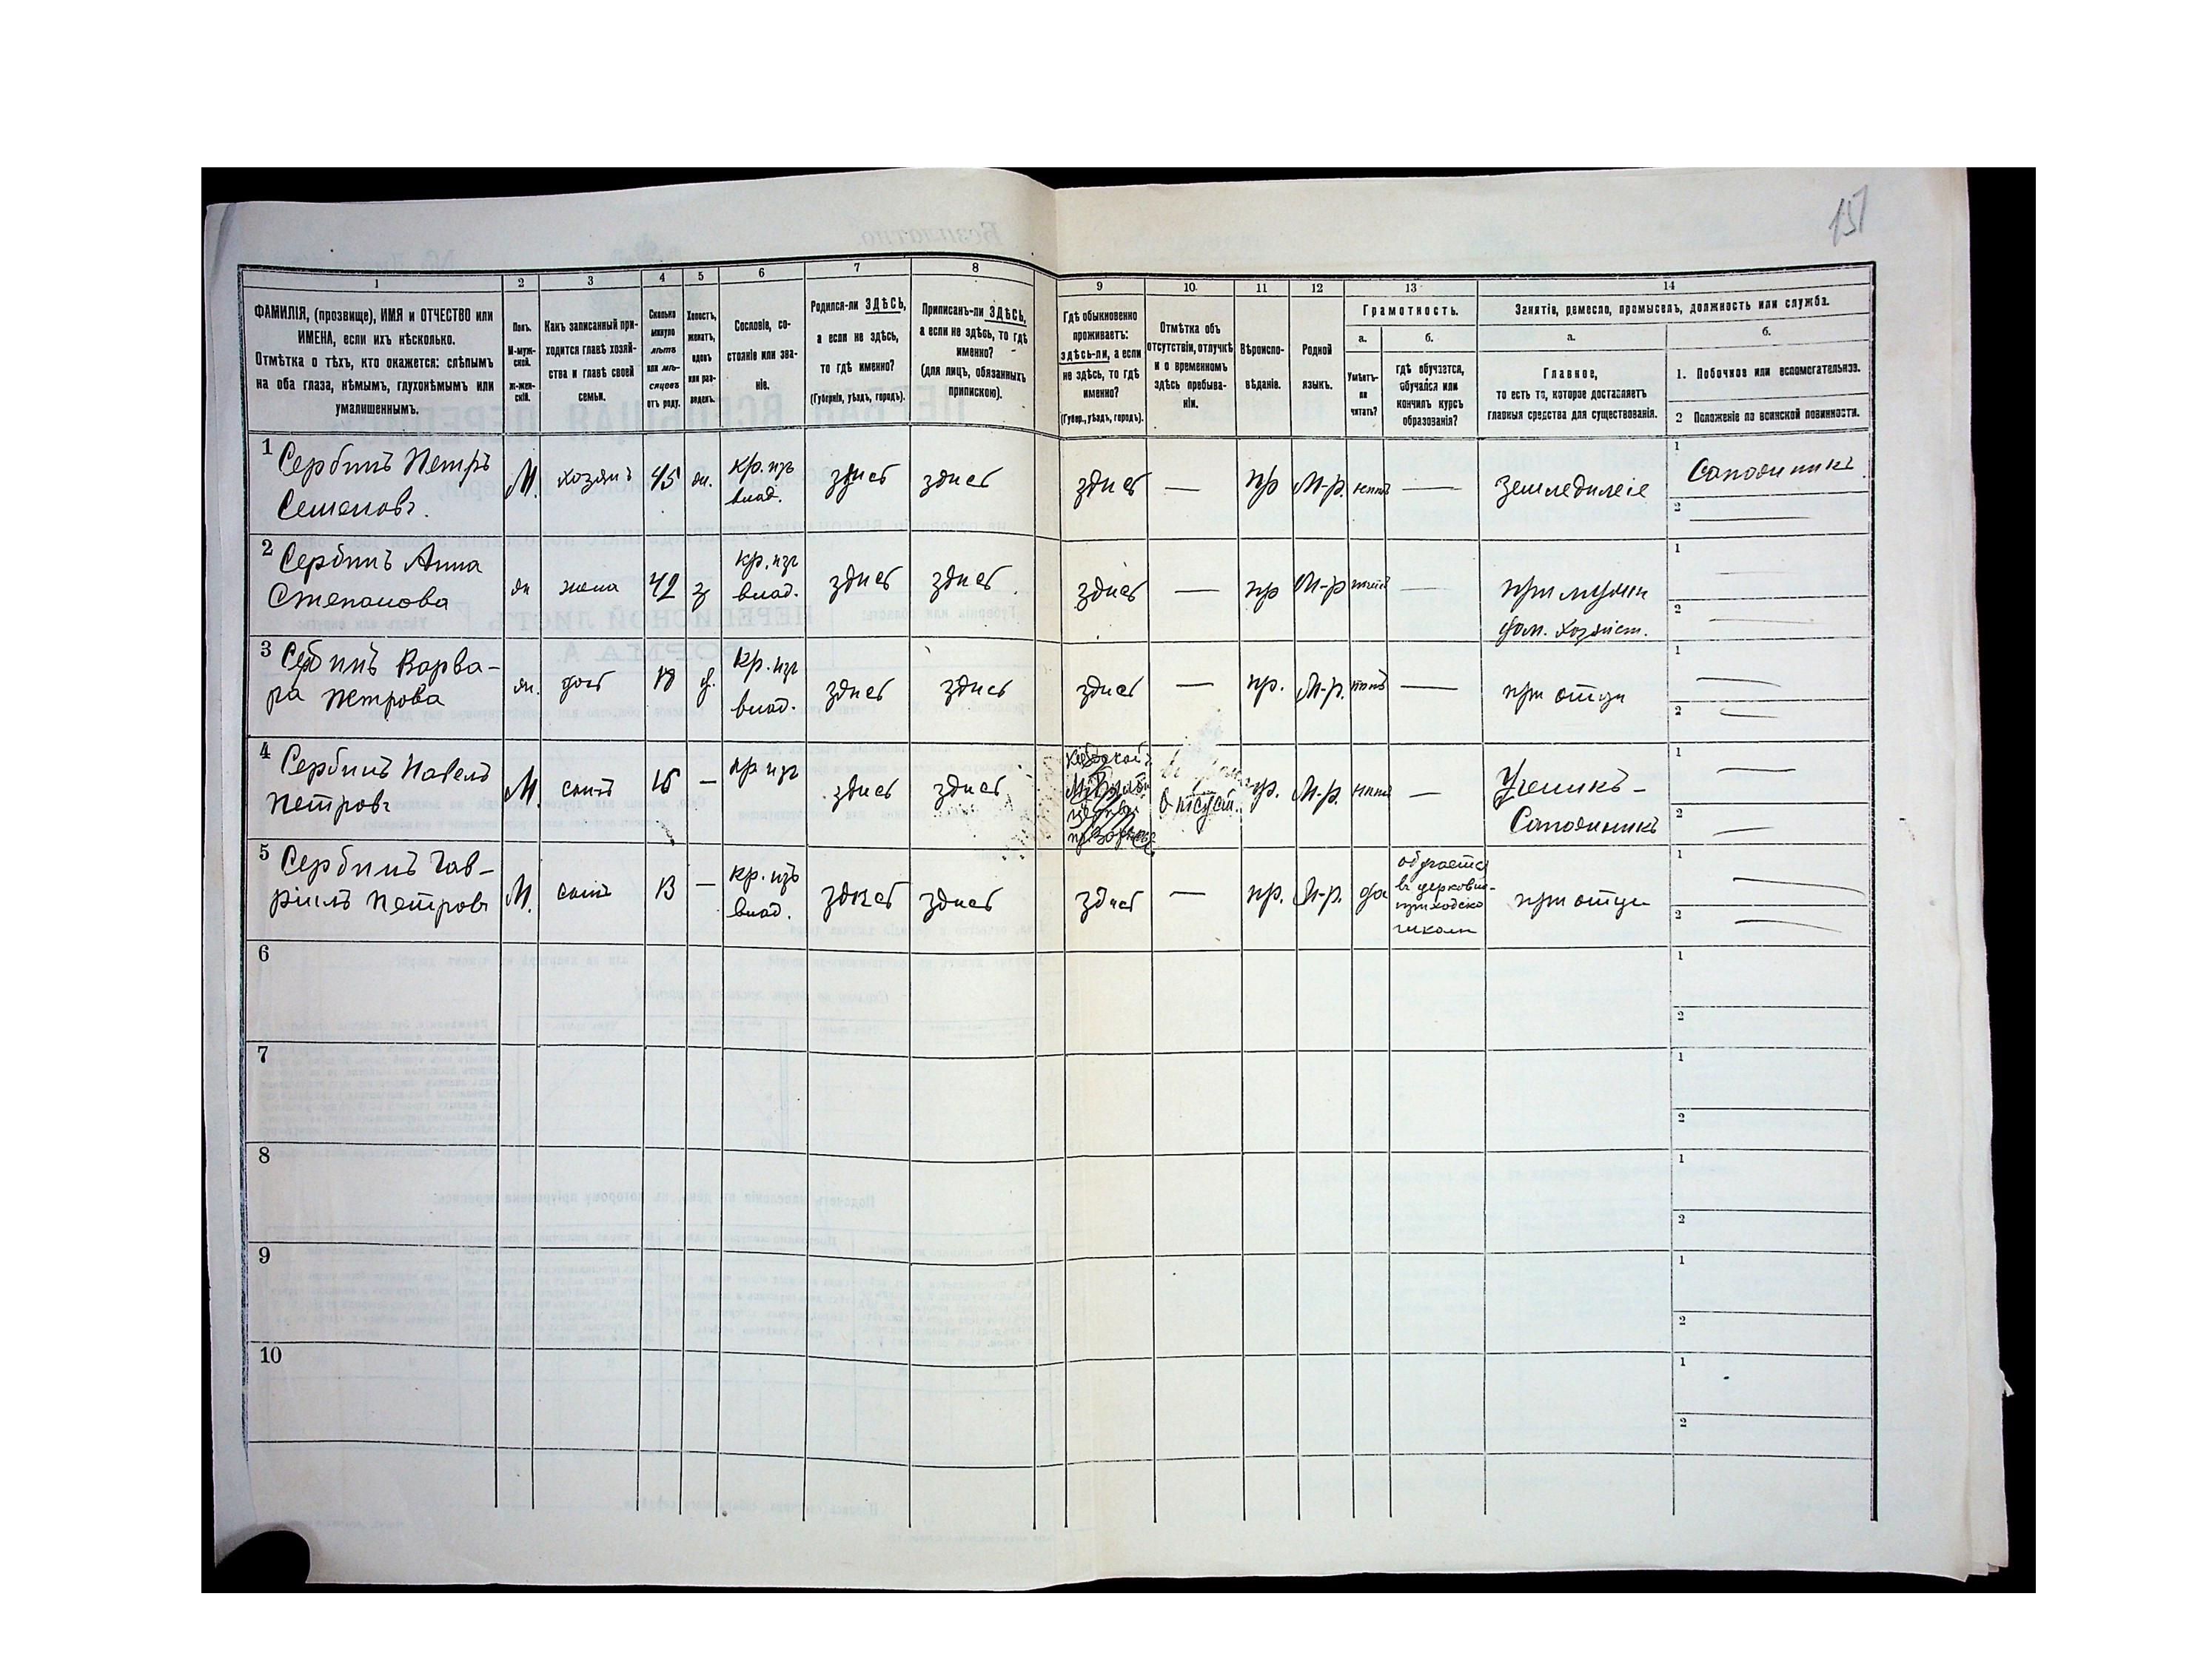 157
1
2
3
4
5
6
7
8
9
10
11
12
13
14
ФАМИЛІЯ, (прозвище), ИМЯ и ОТЧЕСТВО или
ИМЕНА, если ихъ нѣсколько.
Отмѣтка о тѣхъ, кто окажется: слѣпымъ
на оба глаза, нѣмымъ, глухонѣмымъ или
умалишеннымъ.
Полъ.
М-муж-
ской.
Ж-жен-
скій.
Какъ записанный при-
ходится главѣ хозяй-
ства и главѣ своей
семьи.
Сколько
минуло
лѣтъ
или мѣ-
сяцевъ
отъ роду.
Холостъ,
женатъ,
вдовъ
или раз-
веденъ.
Сословіе, со-
стояніе или зва-
ніе.
Родился-ли ЗДѢСЬ,
а если не здѣсь,
то гдѣ именно?
(Губернія, уѣздъ, городъ).
Приписанъ-ли ЗДѢСЬ,
а если не здѣсь, то гдѣ
именно?
(для лицъ, обязанныхъ
припискою).
Гдѣ обыкновенно
проживаетъ:
здѣсь-ли, а если
не здѣсь, то гдѣ
именно?
(Губер., уѣздъ, городъ).
Отмѣтка объ
отсутствіи, отлучкѣ
и о временномъ
здѣсь пребыва-
ніи.
Вѣроиспо-
вѣданіе.
Родной
языкъ.
Грамотность.
а.
б.
Умѣетъ-
ли
читать?
гдѣ обучается,
обучался или
кончилъ курсъ
образованія?
Занятіе, ремесло, промыселъ, должность или служба.
а.
б.
Главное,
то есть то, которое доставляетъ
главныя средства для существованія.
1. Побочное или вспомогательное.
2 Положеніе по воинской повинности.
1 Сербинъ Петръ
Семеновъ.
М.
хозяинъ
45
ж.
кр. изъ
влад.
здесь
здесь
здесь
—
пр
М-р.
нетъ
—
земледиліе
1 Сапожникъ
2 —
2 Сербинъ Анна
Степанова
ж
жена
42
з
кр. изъ
влад.
здесь
здесь
здесь
—
пр
М-р
нетъ
—
при мужи
дом. хозяйст.
1 —
2 —
3 Сербинъ Варва-
ра Петрова
ж.
дочь
18
д.
кр. изъ
влад.
здесь
здесь
здесь
—
пр.
М-р.
нетъ
—
при отци
1 —
2 —
4 Сербинъ Павелъ
Петровъ
М.
сынъ
16
—
кр изъ
здесь
здесь
Отсутст.
пр.
М-р.
нетъ
—
Ученикъ -
Сапожникъ
1 —
2 —
5 Сербинъ Гав-
ріилъ Петровъ
М.
сынъ
13
—
кр. изъ
влад.
здесь
здесь
здесь
—
пр.
М-р.
да
обучается
въ церковно-
приходско
школи
при отци
1 —
2 —
6
1
2
7
1
2
8
1
2
9
1
2
10
1
2